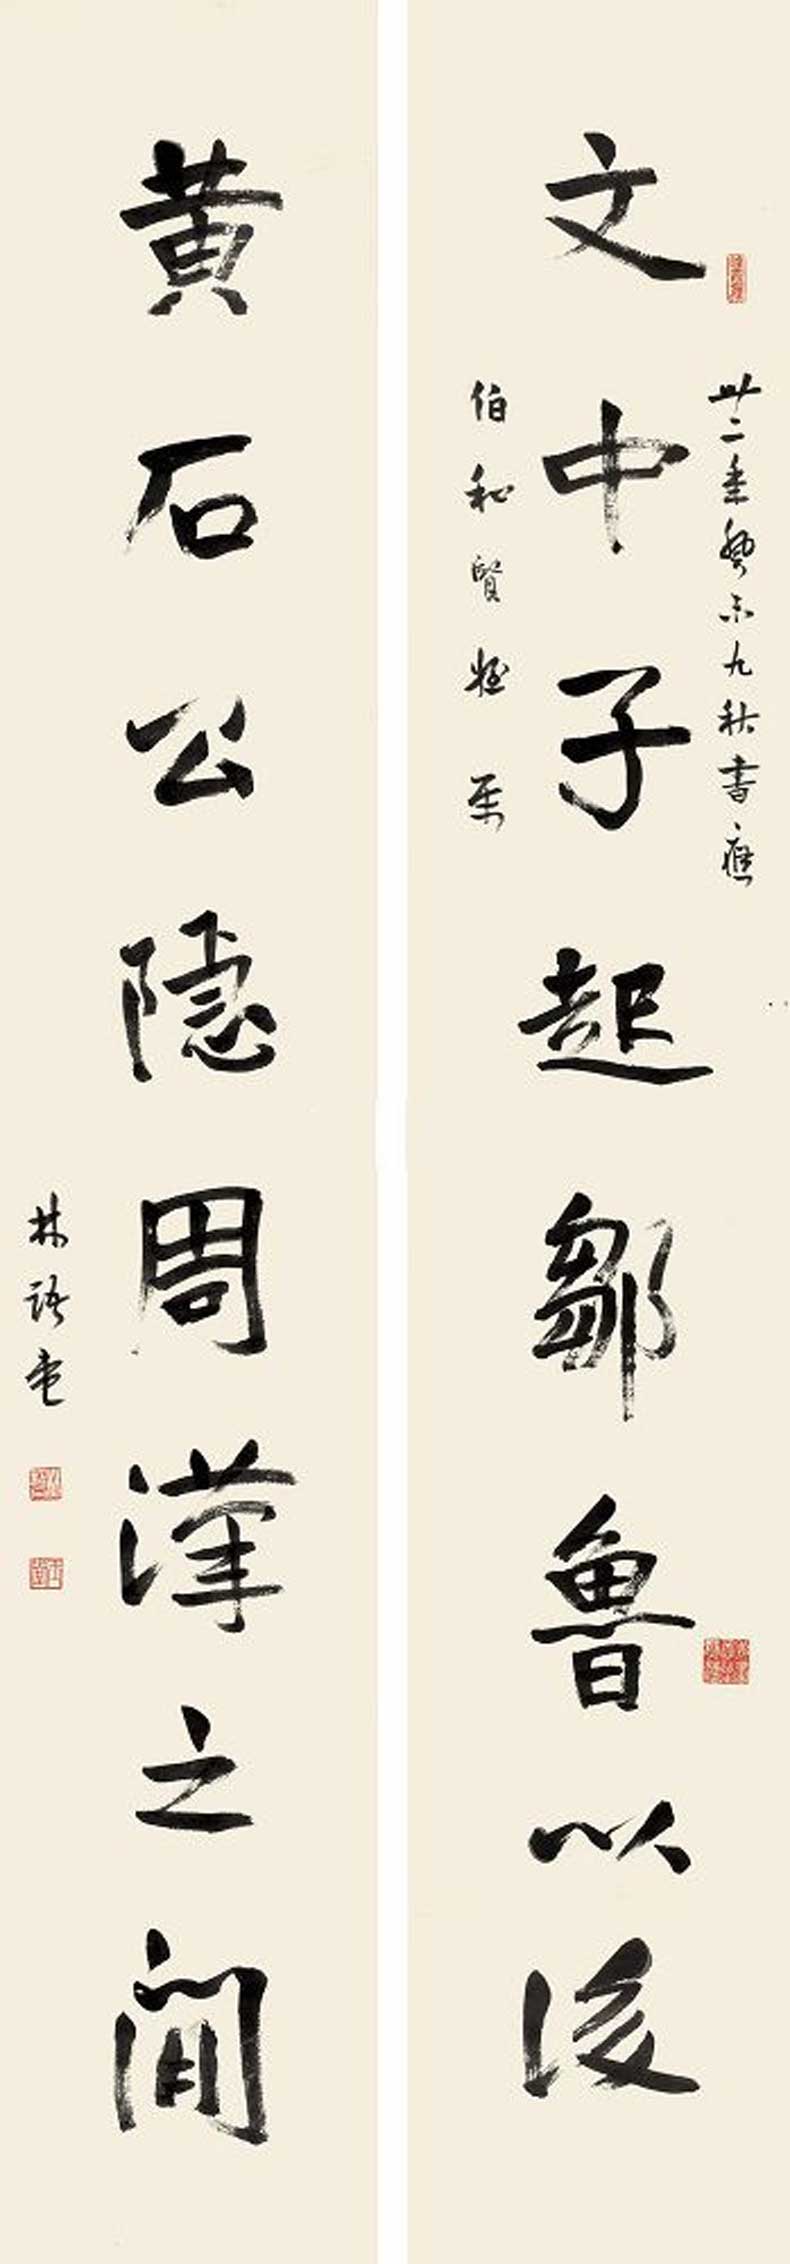 卅二年癸未九秋書應
文中子起鄒魯以後
伯和賢姪屬
黃石公隱周漢之閒
林語堂